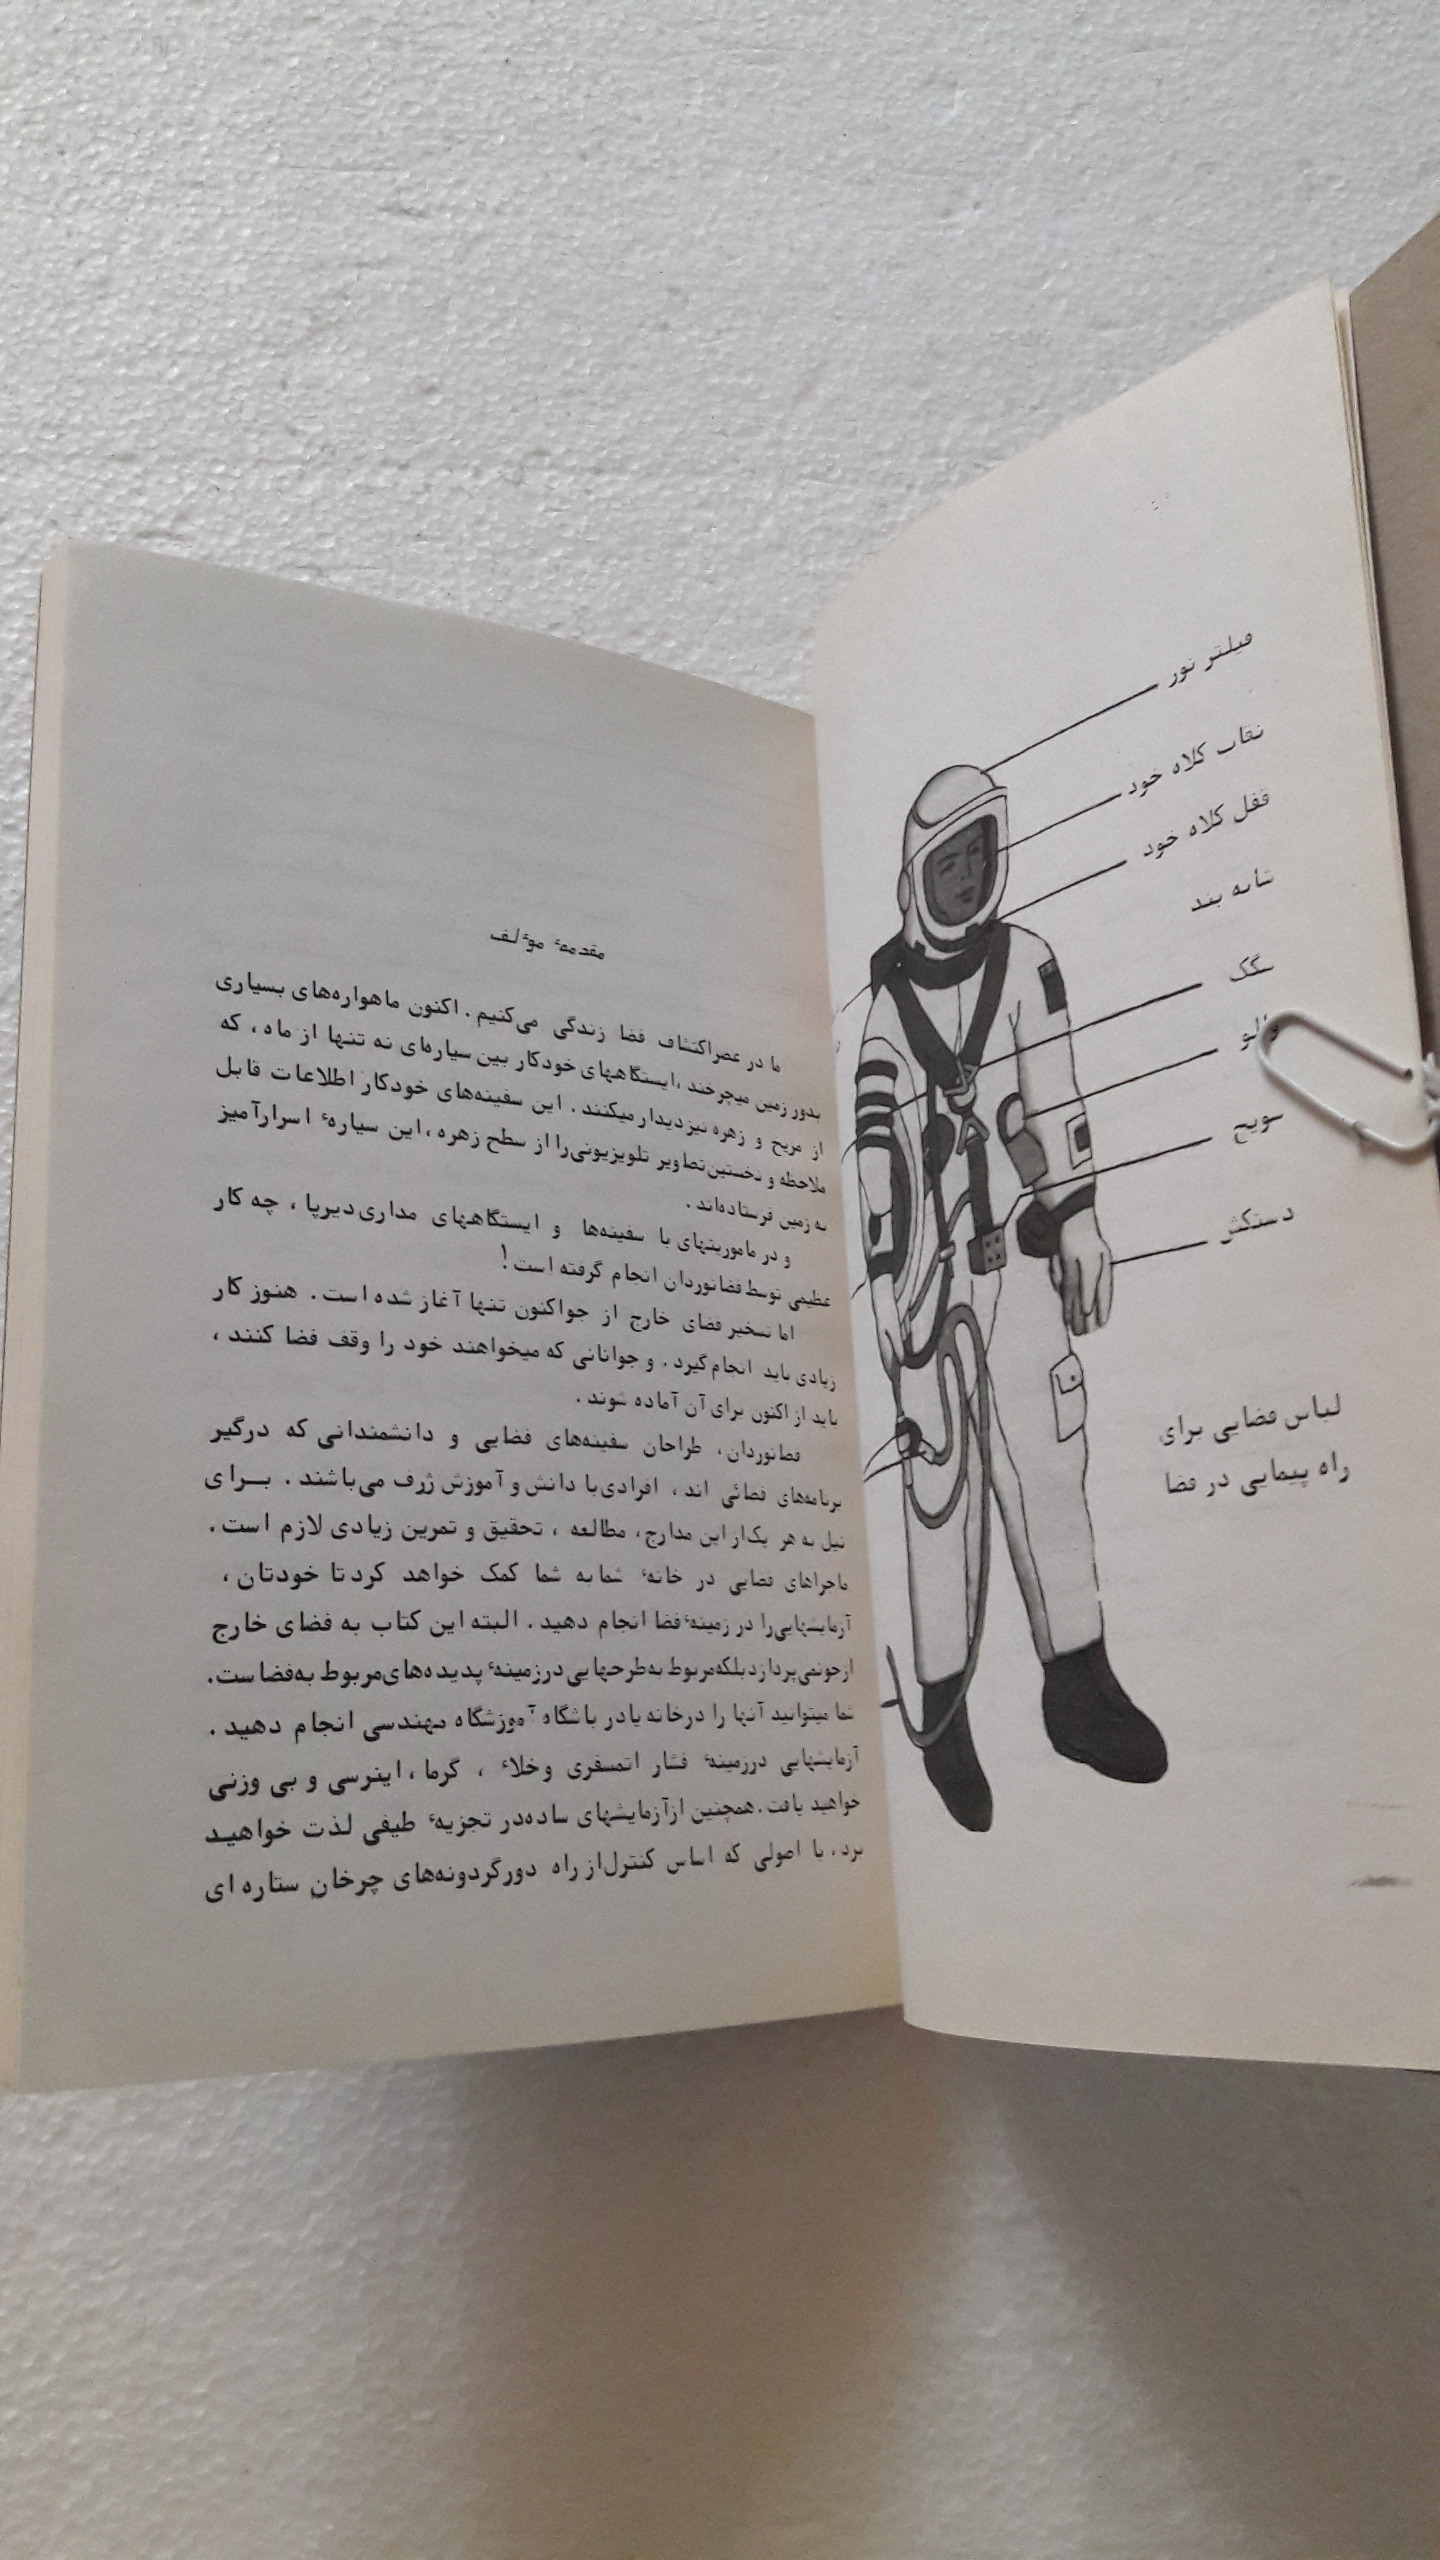 فیلتر نور
نقاب کلاه خود
قفل کلاه خود
شانه بند
سگک
والو
سویچ
دستکش
لباس فضایی برای
راه پیمایی در فضا
مقدمهٔ موٴلف
ما در عصر اکتشاف فضا زندگی می‌کنیم. اکنون ماهواره‌های بسیاری
بدور زمین میچرخند، ایستگاههای خودکار بین سیاره‌ای نه تنها از ماه، که
از مریخ و زهره نیز دیدار میکنند. این سفینه‌های خودکار اطلاعات قابل
ملاحظه و نخستین تصاویر تلویزیونی را از سطح زهره، این سیارهٔ اسرارآمیز
به زمین فرستاده‌اند.
و در ماموریتهای با سفینه‌ها و ایستگاههای مداری دیرپا، چه کار
عظیمی توسط فضانوردان انجام گرفته است!
اما تسخیر فضای خارج از جو اکنون تنها آغاز شده است. هنوز کار
زیادی باید انجام گیرد. و جوانانی که میخواهند خود را وقف فضا کنند،
باید از اکنون برای آن آماده شوند.
فضانوردان، طراحان سفینه‌های فضایی و دانشمندانی که درگیر
برنامه‌های فضائی اند، افرادی با دانش و آموزش ژرف می‌باشند. برای
نیل به هر یک از این مدارج، مطالعه، تحقیق و تمرین زیادی لازم است.
ماجراهای فضایی در خانهٔ شما به شما کمک خواهد کرد تا خودتان،
آزمایشهایی را در زمینهٔ فضا انجام دهید. البته این کتاب به فضای خارج
از جو نمی‌پردازد بلکه مربوط به طرحهایی در زمینهٔ پدیده‌های مربوط به فضا ست.
شما میتوانید آنها را در خانه یا در باشگاه آموزشگاه مهندسی انجام دهید.
آزمایشهایی در زمینهٔ فشار اتمسفری و خلاء، گرما، اینرسی و بی وزنی
خواهید یافت. همچنین از آزمایشهای ساده در تجزیهٔ طیفی لذت خواهید
برد. با اصولی که اساس کنترل از راه دور گردونه‌های چرخان ستاره ای